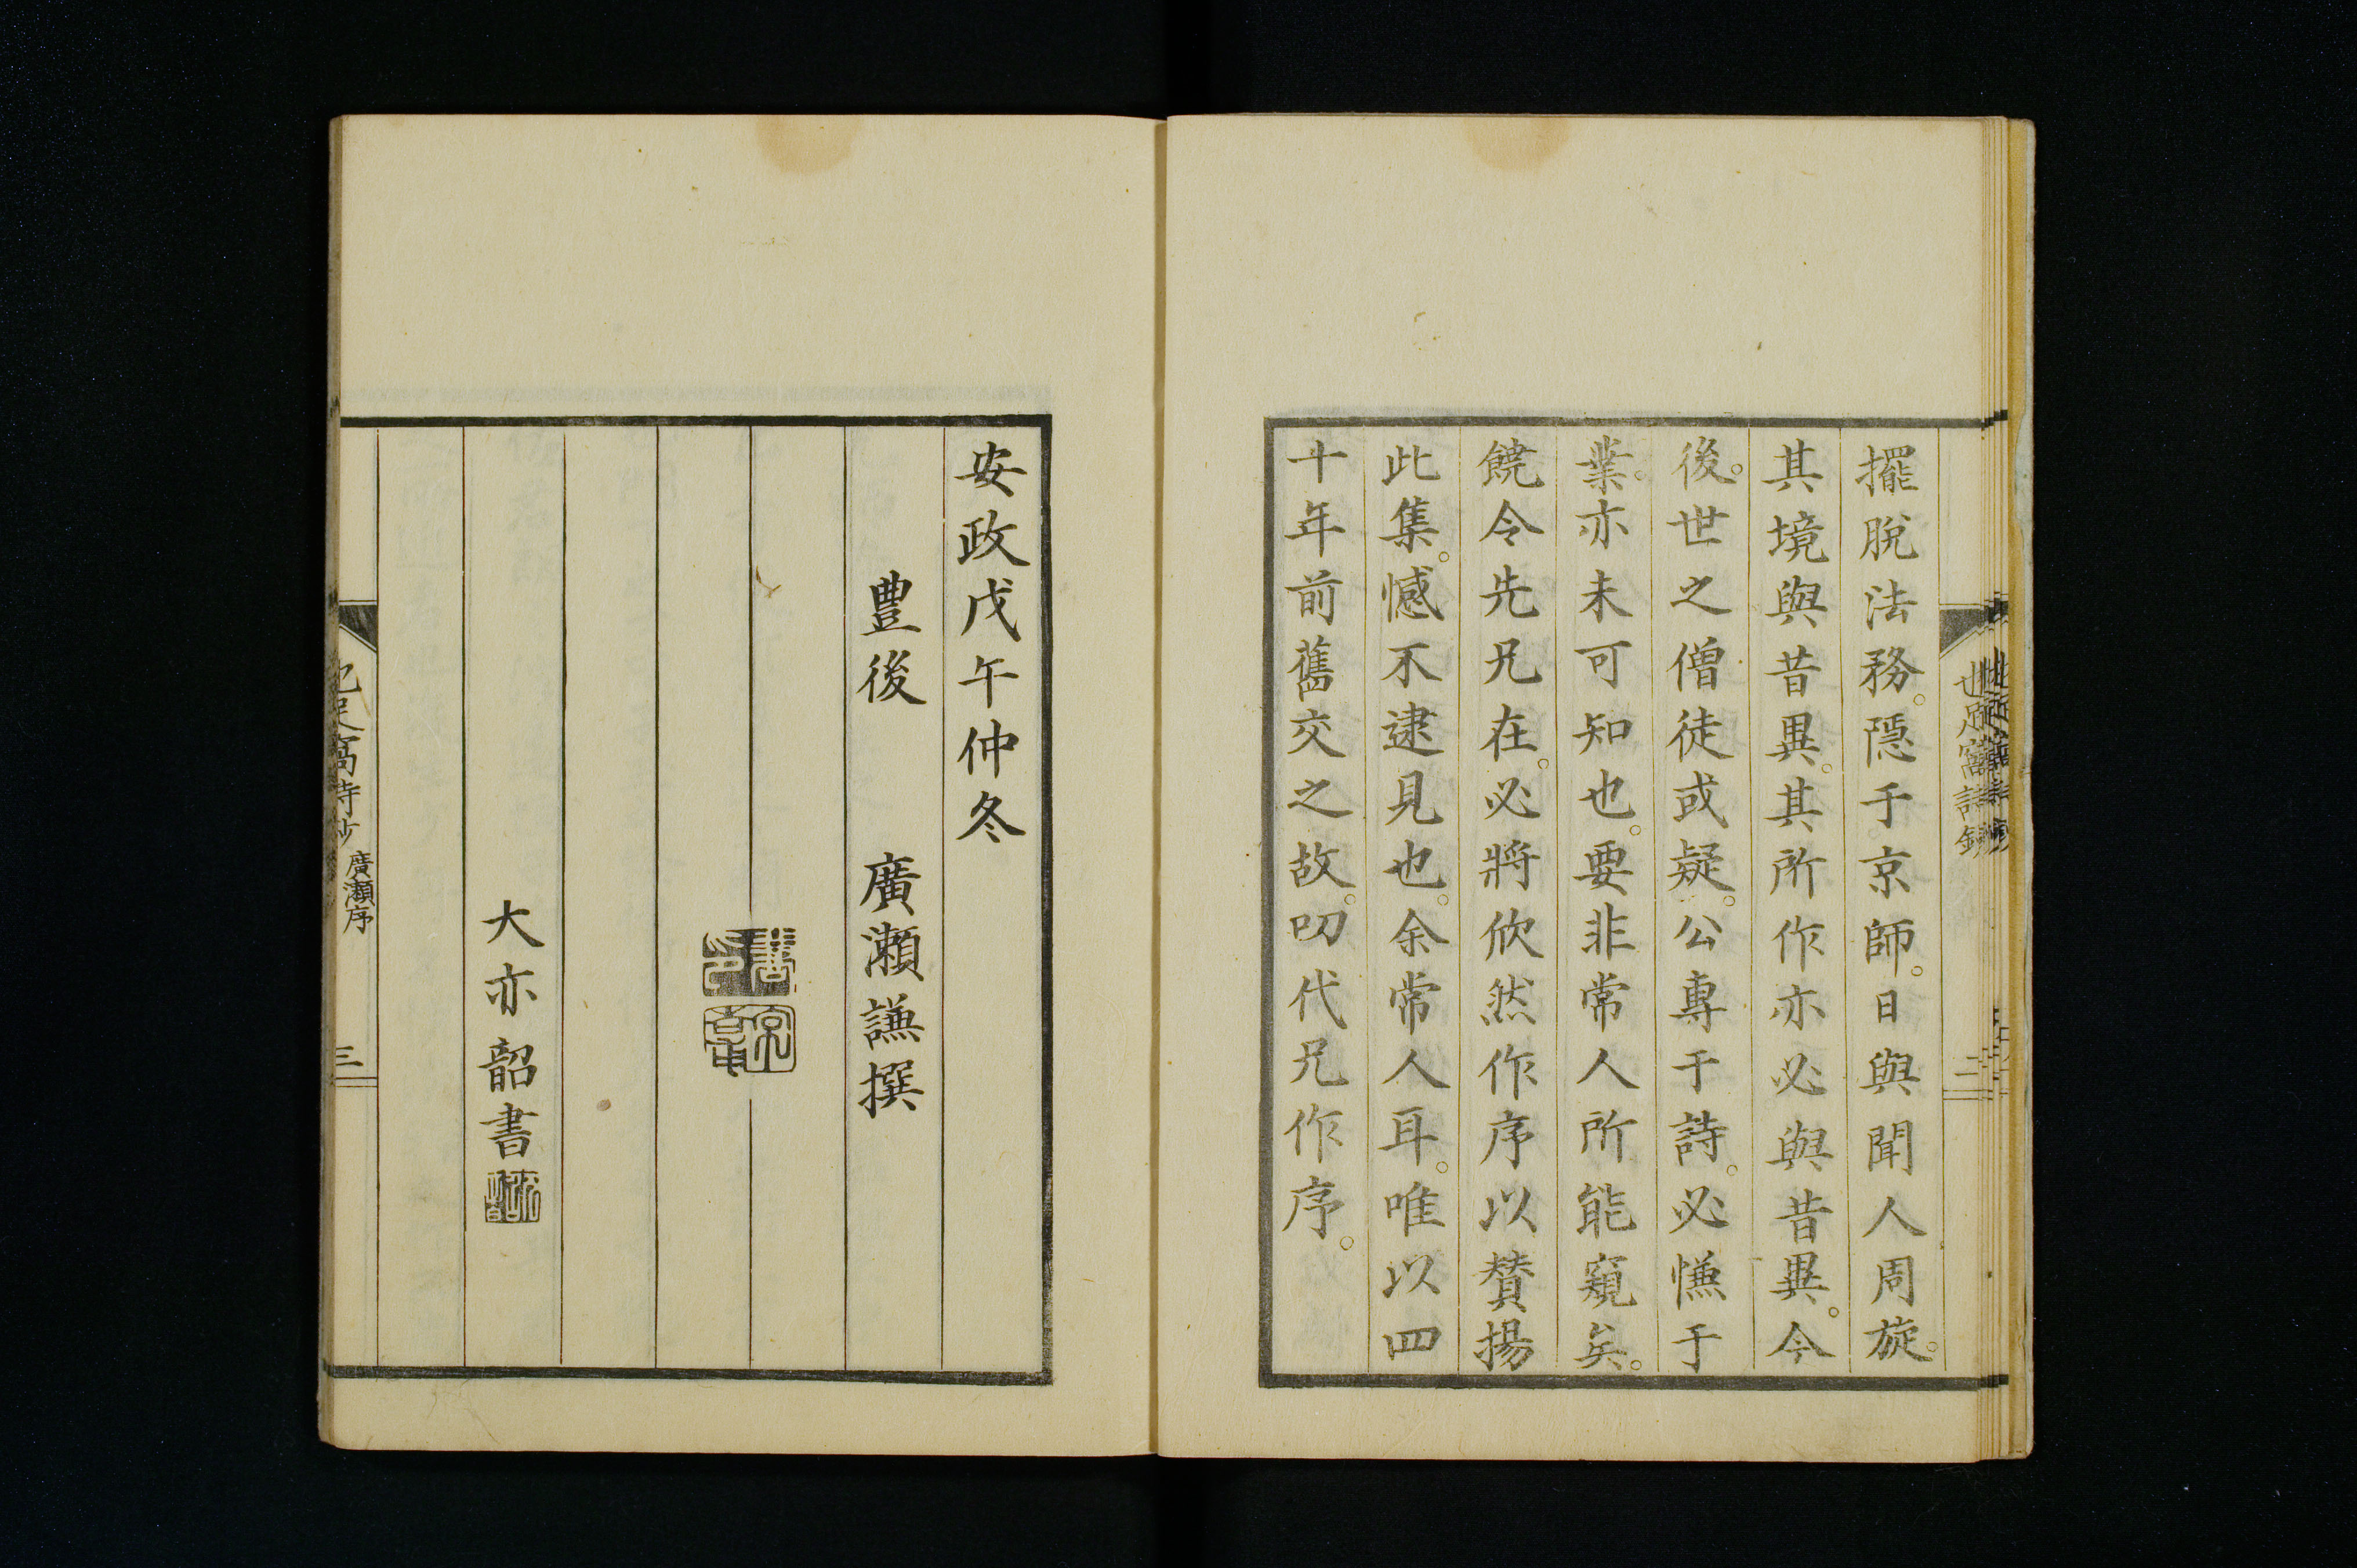 擺脫法務。隱于京師。日與聞人周旋。
其境與昔異。其所作亦必與昔異。今
後。世之僧徒或疑。公專于詩。必慊于
業。亦未可知也。要非常人所能窺矣。
饒令先兄在。必將欣然作序以賛揚
此集。憾不逮見也。余常人耳。唯以四
十年前舊交之故。叨代兄作序。
也足窩詩鈔
二
安政戊午仲冬
豊後 廣瀨謙撰
大亦韶書
也足窩詩鈔 廣瀨序
三